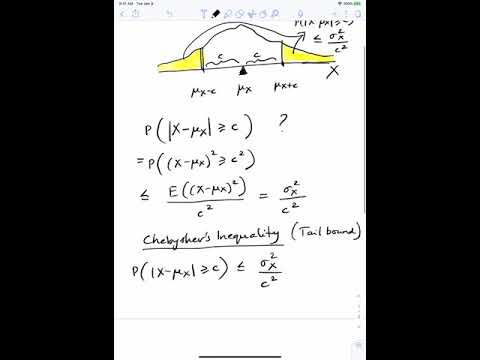 9:41 AM Tue Jan 9
≤ σx²/c²
c c
X
μx-c μx μx+c
P(|X-μx| ≥ c) ?
= P((X-μx)² ≥ c²)
≤ E((X-μx)²)/c² = σx²/c²
Chebyshev's Inequality (Tail bound)
P(|X-μx| ≥ c) ≤ σx²/c²